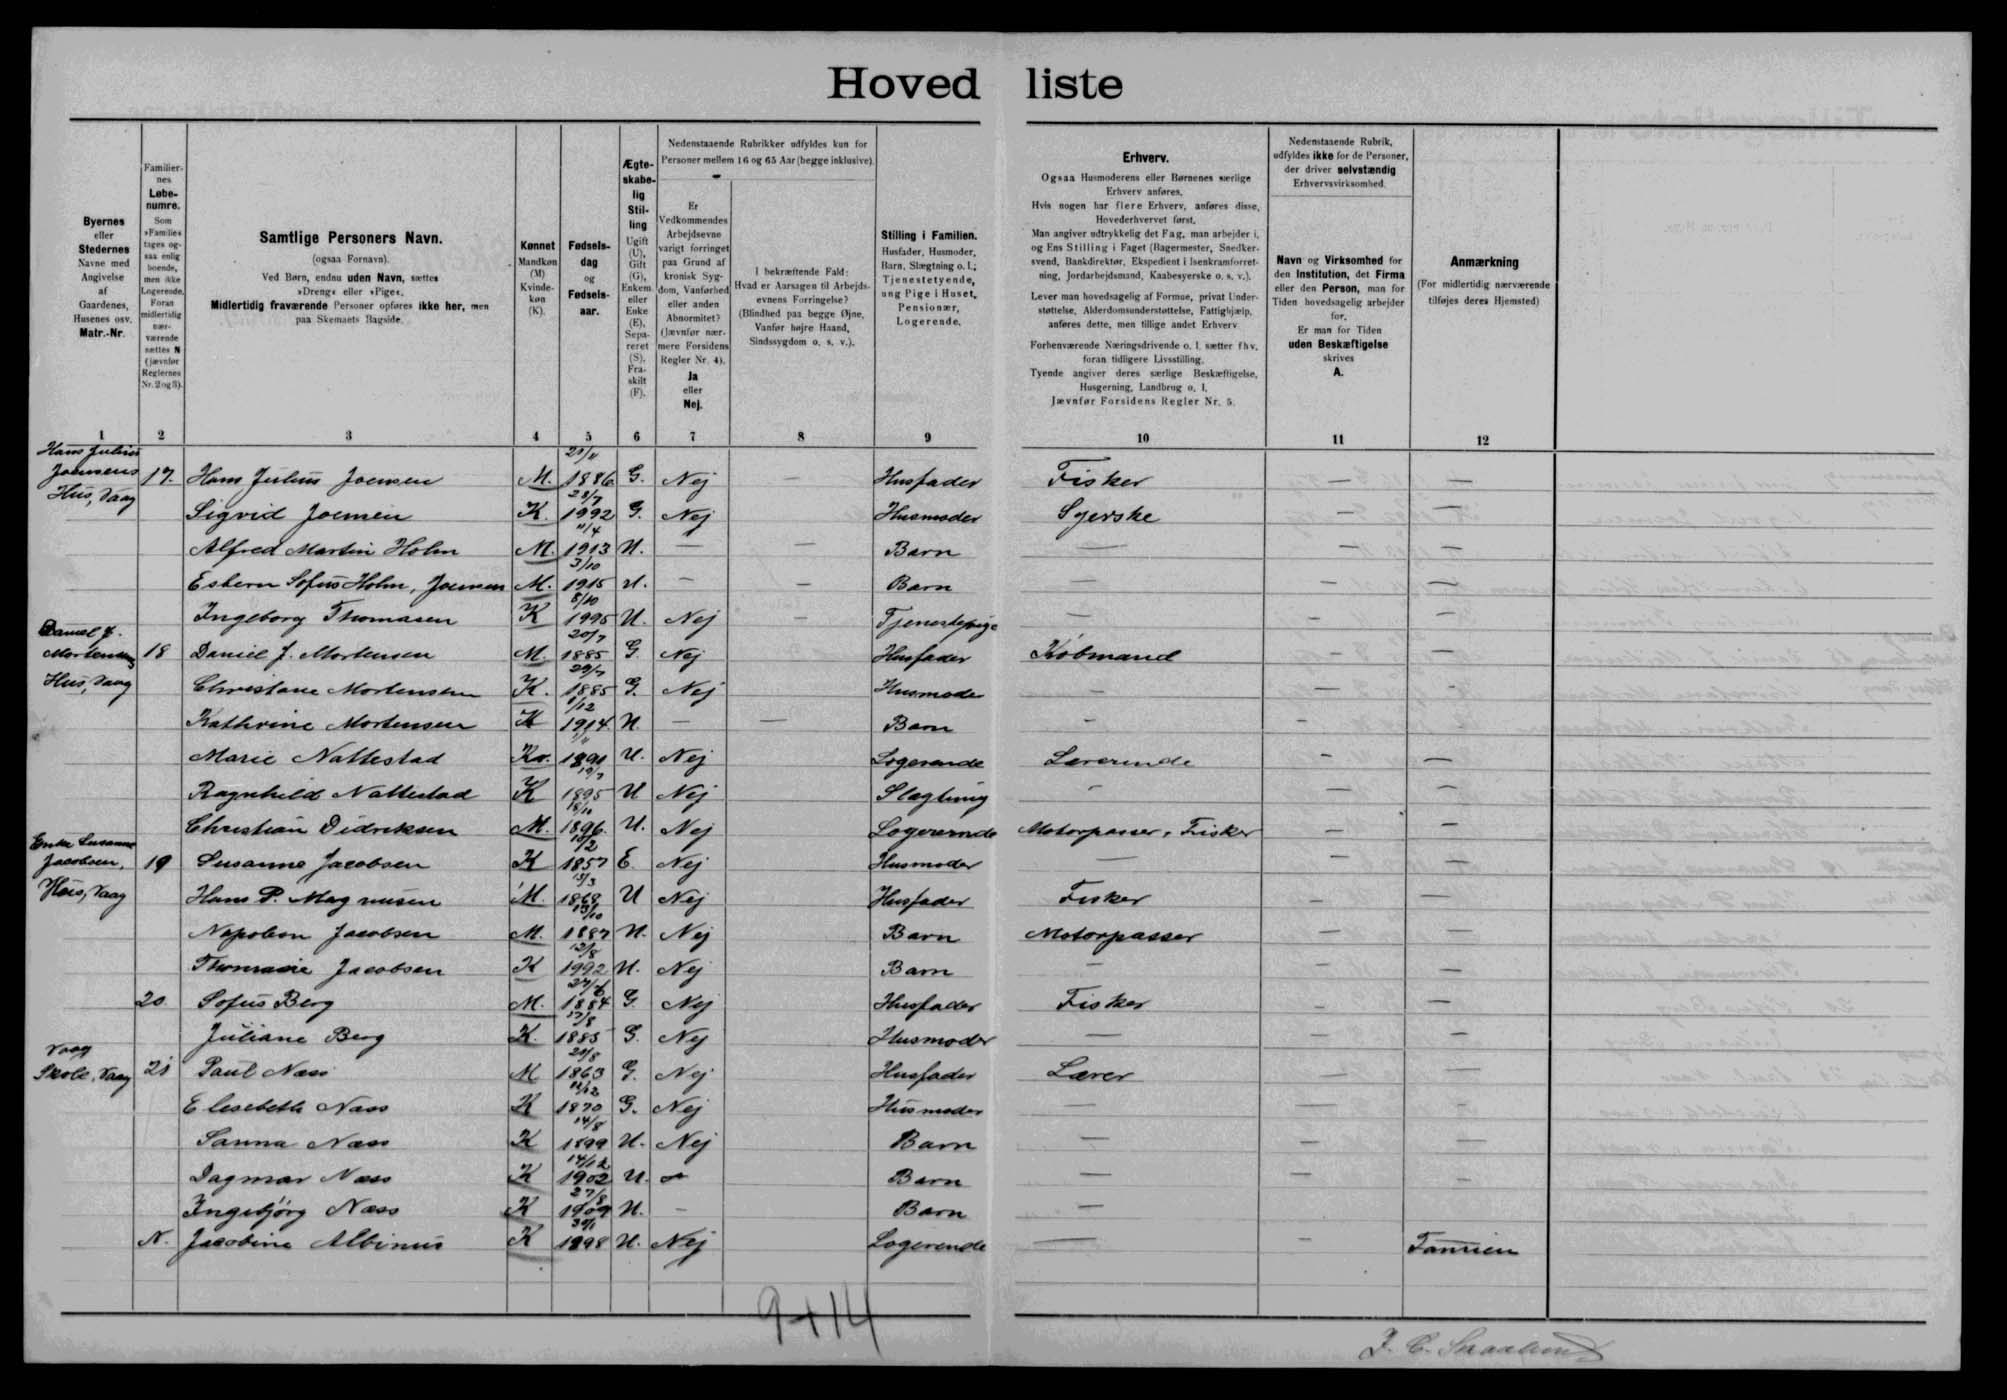 Hoved liste
Byernes
eller
Stedernes
Navne med
Angivelse
af
Gaardenes,
Husenes osv.
Matr.-Nr.
Familier-
nes
Løbe-
numre.
Som
»Familie«
tages og-
saa enlig
boende,
men ikke
Logerende.
Foran
midlertidig
nær-
værende
sættes N
(jævnfør
Reglernes
Nr. 2 og 3).
Samtlige Personers Navn.
(ogsaa Fornavn).
Ved Børn, endnu uden Navn, sættes
»Dreng« eller »Pige«.
Midlertidig fraværende Personer opføres ikke her, men
paa Skemaets Bagside.
Kønnet
Mandkøn
(M)
Kvinde-
køn
(K).
Fødsels-
dag
og
Fødsels-
aar.
Ægte-
skabe-
lig
Stil-
ling
Ugift
(U),
Gift
(G),
Enkem.
eller
Enke
(E),
Sepa-
reret
(S),
Fra-
skilt
(F).
Nedenstaaende Rubrikker udfyldes kun for
Personer mellem 16 og 65 Aar (begge inklusive).
Er
Vedkommendes
Arbejdsevne
varigt forringet
paa Grund af
kronisk Syg-
dom, Vanførhed
eller anden
Abnormitet?
(Jævnfør nær-
mere Forsidens
Regler Nr. 4).
Ja
eller
Nej.
I bekræftende Fald:
Hvad er Aarsagen til Arbejds-
evnens Forringelse?
(Blindhed paa begge Øjne,
Vanfør højre Haand,
Sindssygdom o. s. v.).
Stilling i Familien.
Husfader, Husmoder,
Barn, Slægtning o. l.;
Tjenestetyende,
ung Pige i Huset,
Pensionær,
Logerende.
Erhverv.
Ogsaa Husmoderens eller Børnenes særlige
Erhverv anføres.
Hvis nogen har flere Erhverv, anføres disse,
Hovederhvervet først.
Man angiver udtrykkelig det Fag, man arbejder i,
og Ens Stilling i Faget (Bagermester, Snedker-
svend, Bankdirektør, Ekspedient i Isenkramforret-
ning, Jordarbejdsmand, Kaabesyerske o. s. v.).
Lever man hovedsagelig af Formue, privat Under-
støttelse, Alderdomsunderstøttelse, Fattighjælp,
anføres dette, men tillige andet Erhverv
Forhenværende Næringsdrivende o. l. sætter fhv.
foran tidligere Livsstilling.
Tyende angiver deres særlige Beskæftigelse,
Husgerning, Landbrug o. l.
Jævnfør Forsidens Regler Nr. 5.
Nedenstaaende Rubrik,
udfyldes ikke for de Personer,
der driver selvstændig
Erhvervsvirksomhed.
Navn og Virksomhed for
den Institution, det Firma
eller den Person, man for
Tiden hovedsagelig arbejder
for.
Er man for Tiden
uden Beskæftigelse
skrives
A.
Anmærkning
(For midlertidig nærværende
tilføjes deres Hjemsted)
1 2 3 4 5 6 7 8 9 10 11 12
Hans Julius
Joensens
Hus, Vaag
17. Hans Julius Joensen M. 20/11 1886 G. Nej — Husfader Fisker — —
Sigvid Joensen K. 28/7 1992 G. Nej Husmoder Syerske — —
Alfred Martin Holm M. 11/4 1913 U. — — Barn — — —
Esbern Sofus Holm, Joensen M. 3/10 1915 U. — — Barn — — —
Ingeborg Thomasen K 8/10 1995 U. Nej — Tjenestepige — — —
Daniel J.
Mortensens
Hus, Vaag
18 Daniel J. Mortensen M. 20/7 1885 G. Nej Husfader Købmand — —
Christane Mortensen K. 29/7 1885 G. Nej Husmoder — — —
Kathrine Mortensen K 1/12 1914. U. — — Barn — — —
Marie Nattestad Kv. 1/11 1891 U. Nej Logerende Lærerinde — —
Ragnhild Nattestad K 19/7 1895 U Nej Slægtning — — —
Christian Didriksen M. 18/10 1896. U. Nej Logerende Motorpasser, Fisker — —
Enke Susanne
Jacobsen,
Hus, Vaag
19 Susanne Jacobsen K 10/2 1857 E. Nej Husmoder — — —
Hans P. Magnusen M. 13/3 1868 U Nej Husfader Fisker — —
Napoleon Jacobsen M. 13/10 1887 U. Nej Barn Motorpasser — —
Thomasie Jacobsen K 12/8 1992 U. Nej Barn — — —
20 Sofus Berg M. 24/6 1884 G. Nej Husfader Fisker — —
Juliane Berg K. 17/8 1885 G. Nej Husmoder — — —
Vaag
Skole, Vaag
21 Paul Næss M 20/8 1863 G. Nej Husfader Lærer — —
Elesebeth Næss K 12/12 1870 G. Nej Husmoder — — —
Sanna Næss K 14/8 1899 U. Nej Barn — — —
Dagmar Næss K 14/12 1902 U. — Barn — — —
Ingebjørg Næss K 27/8 1909 U. — Barn —
N. Jacobine Albinus K 30/1 1898 U. Nej Logerende — —
9+14